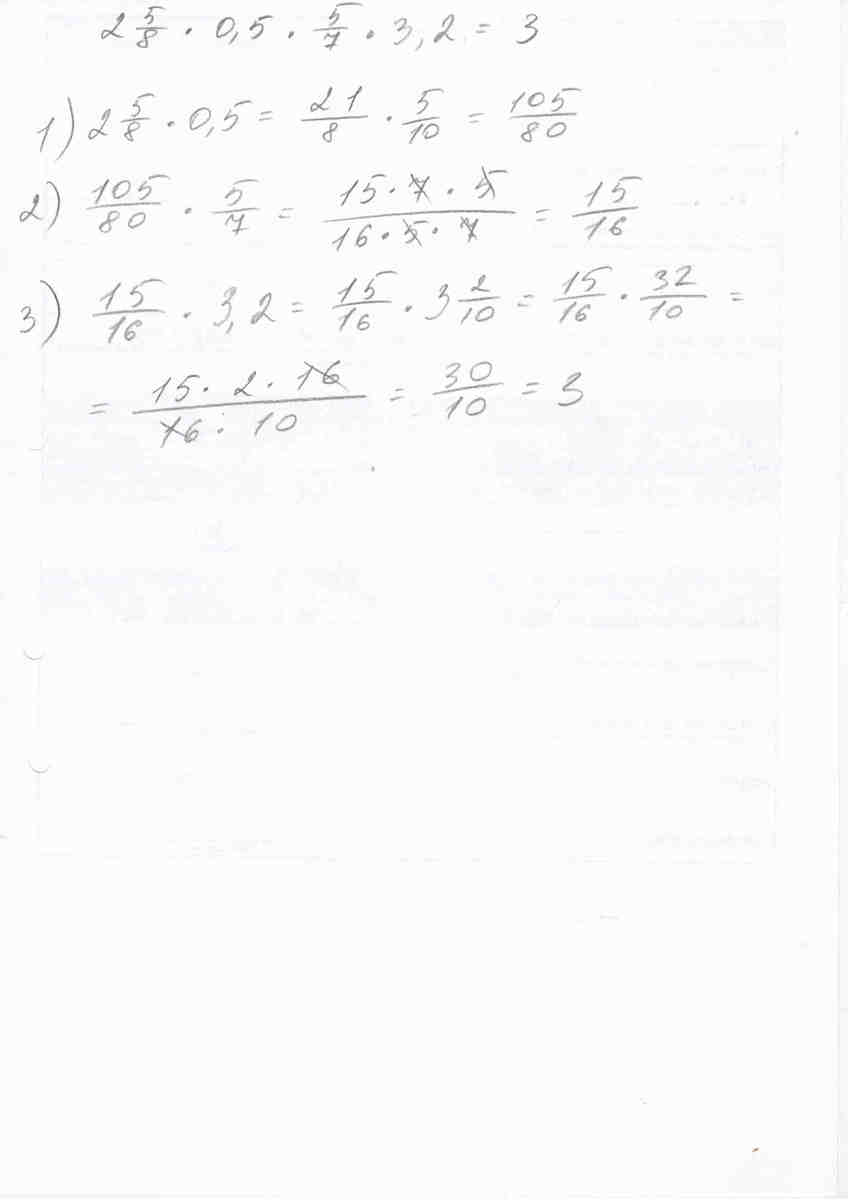 2 5/8 · 0,5 · 5/7 · 3,2 = 3
1) 2 5/8 · 0,5 = 21/8 · 5/10 = 105/80
2) 105/80 · 5/7 = 15·7·5/16·5·7 = 15/16
3) 15/16 · 3,2 = 15/16 · 3 2/10 = 15/16 · 32/10 =
= 15·2·16/16·10 = 30/10 = 3